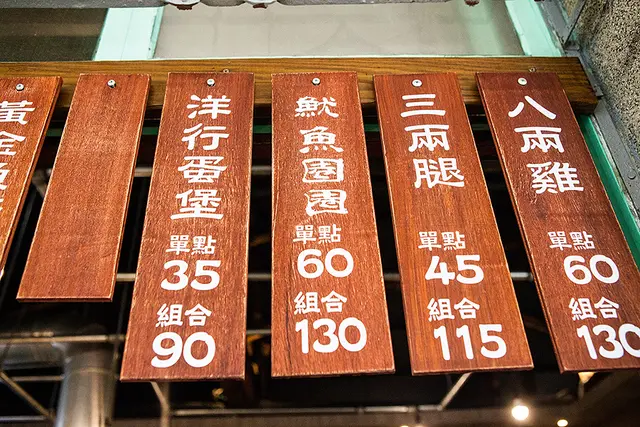 黃金
洋行蛋堡
單點
35
組合
90
魷魚圈圈
單點
60
組合
130
三兩腿
單點
45
組合
115
八兩雞
單點
60
組合
130